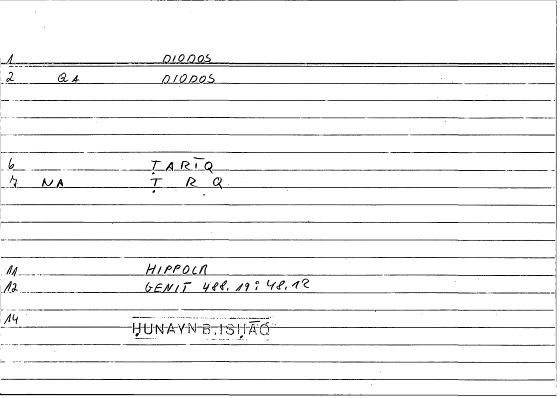 1 DIODOS
2 QA DIODOS
6 ṬARĪQ
7 NA Ṭ R Q
11 HIPPOCR
12 GENIT 488.19: 48.12
14 ḤUNAYN B. ISḤĀQ